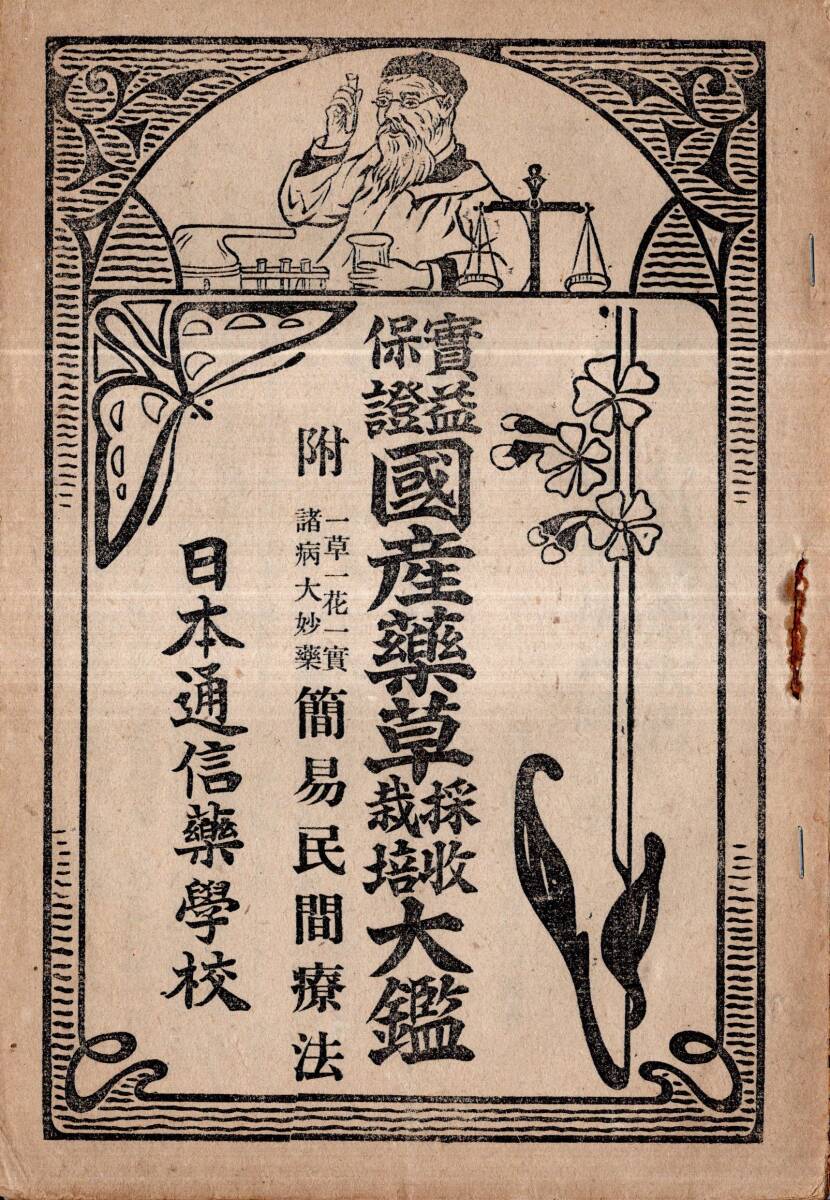 實益保證國產藥草採收栽培大鑑
附 一草一花一實諸病大妙藥 簡易民間療法
日本通信藥學校